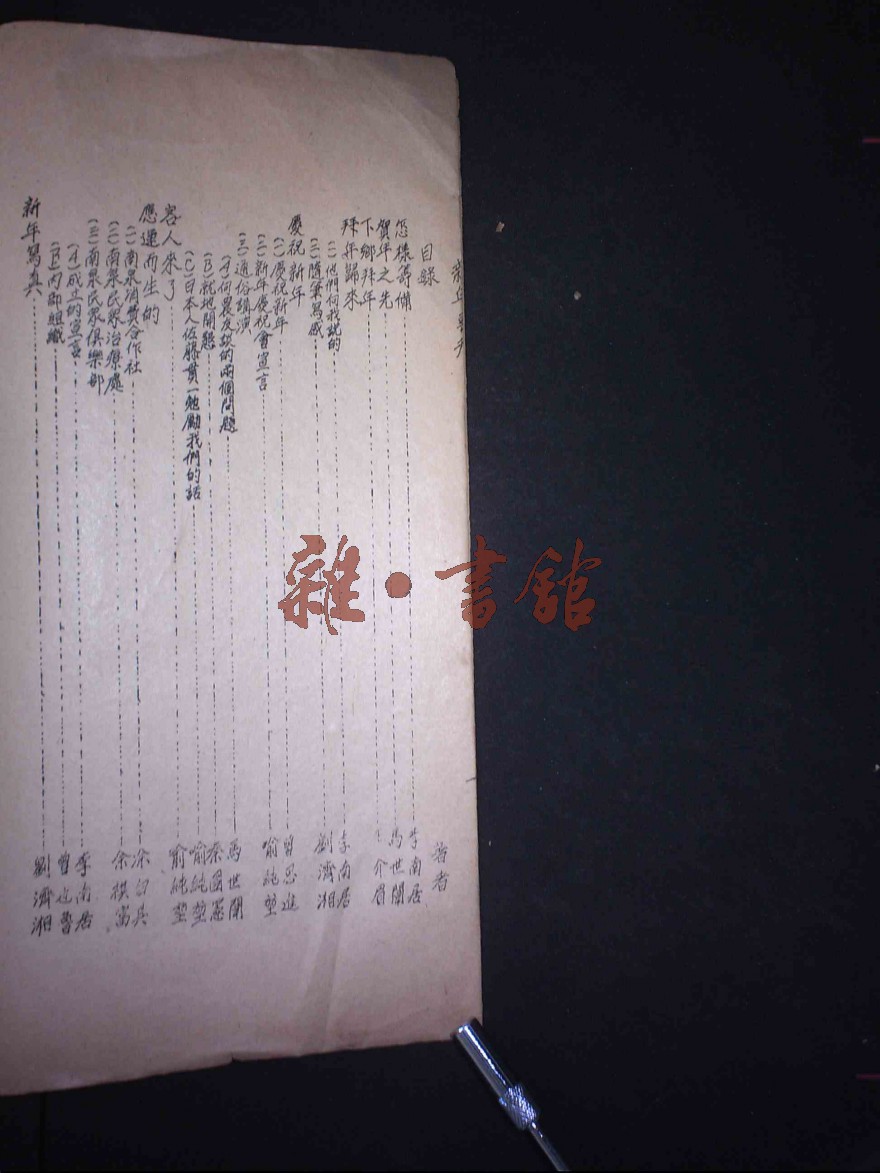 目錄 著者
怎樣籌備 李南居
賀年之先 馬世闌
下鄉拜年 介眉
拜年歸來
(一)他們向我說的 李南居
(二)隨筆寫感 劉濟湘
慶祝新年
(一)慶祝新年 進
(二)新年慶祝會宣言 喻純堃
(三)通俗講演
(A)向農友談的兩個問題 馬世闌
(B)就地開懇 秦國憲
(C)日本人佐藤貫一勉勵我們的話 喻純堃
客人來了 喻純堃
應運而生的
(一)南泉消費合作社 涂白
(二)南泉民眾治療處 余
(三)南泉民眾俱樂部
(A)成立的宣言 李南居
(B)內部組織 曾
新年寫真 劉濟湘
雜·書館